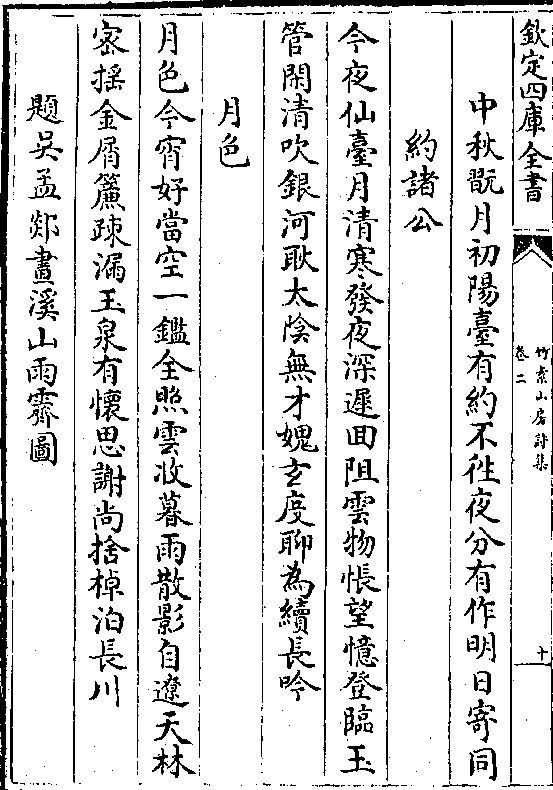 欽定四庫全書
竹素山房詩集
卷二
十
中秋翫月初陽臺有約不徃夜分有作明日寄同
約諸公
今夜仙臺月清寒發夜深遲囬阻雲物悵望憶登臨玉
管閒清吹銀河耿太陰無才媿玄度聊為續長吟
月色
月色今宵好當空一鑑全照雲收暮雨散影自遼天林
宻揺金屑簾踈漏玉泉有懷思謝尚捨棹泊長川
題吳孟郯畫溪山雨霽圖